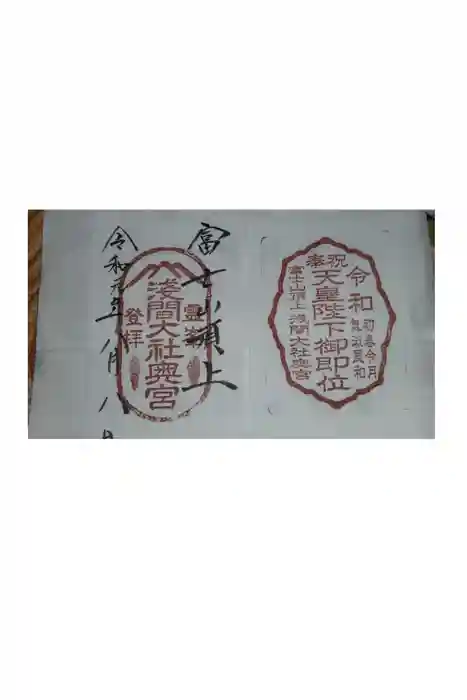 奉祝
天皇陛下御即位
富士山頂上浅間大社奥宮
令和
初春令月
氣淑風和
富士山頂上
霊峰
浅間大社奥宮
登拝
令和元年八月八日